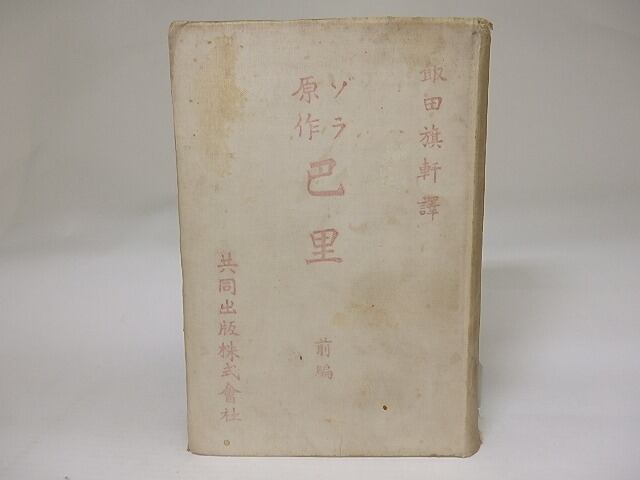 飯田旗軒譯
ゾラ
原作
巴里
前編
共同出版株式會社